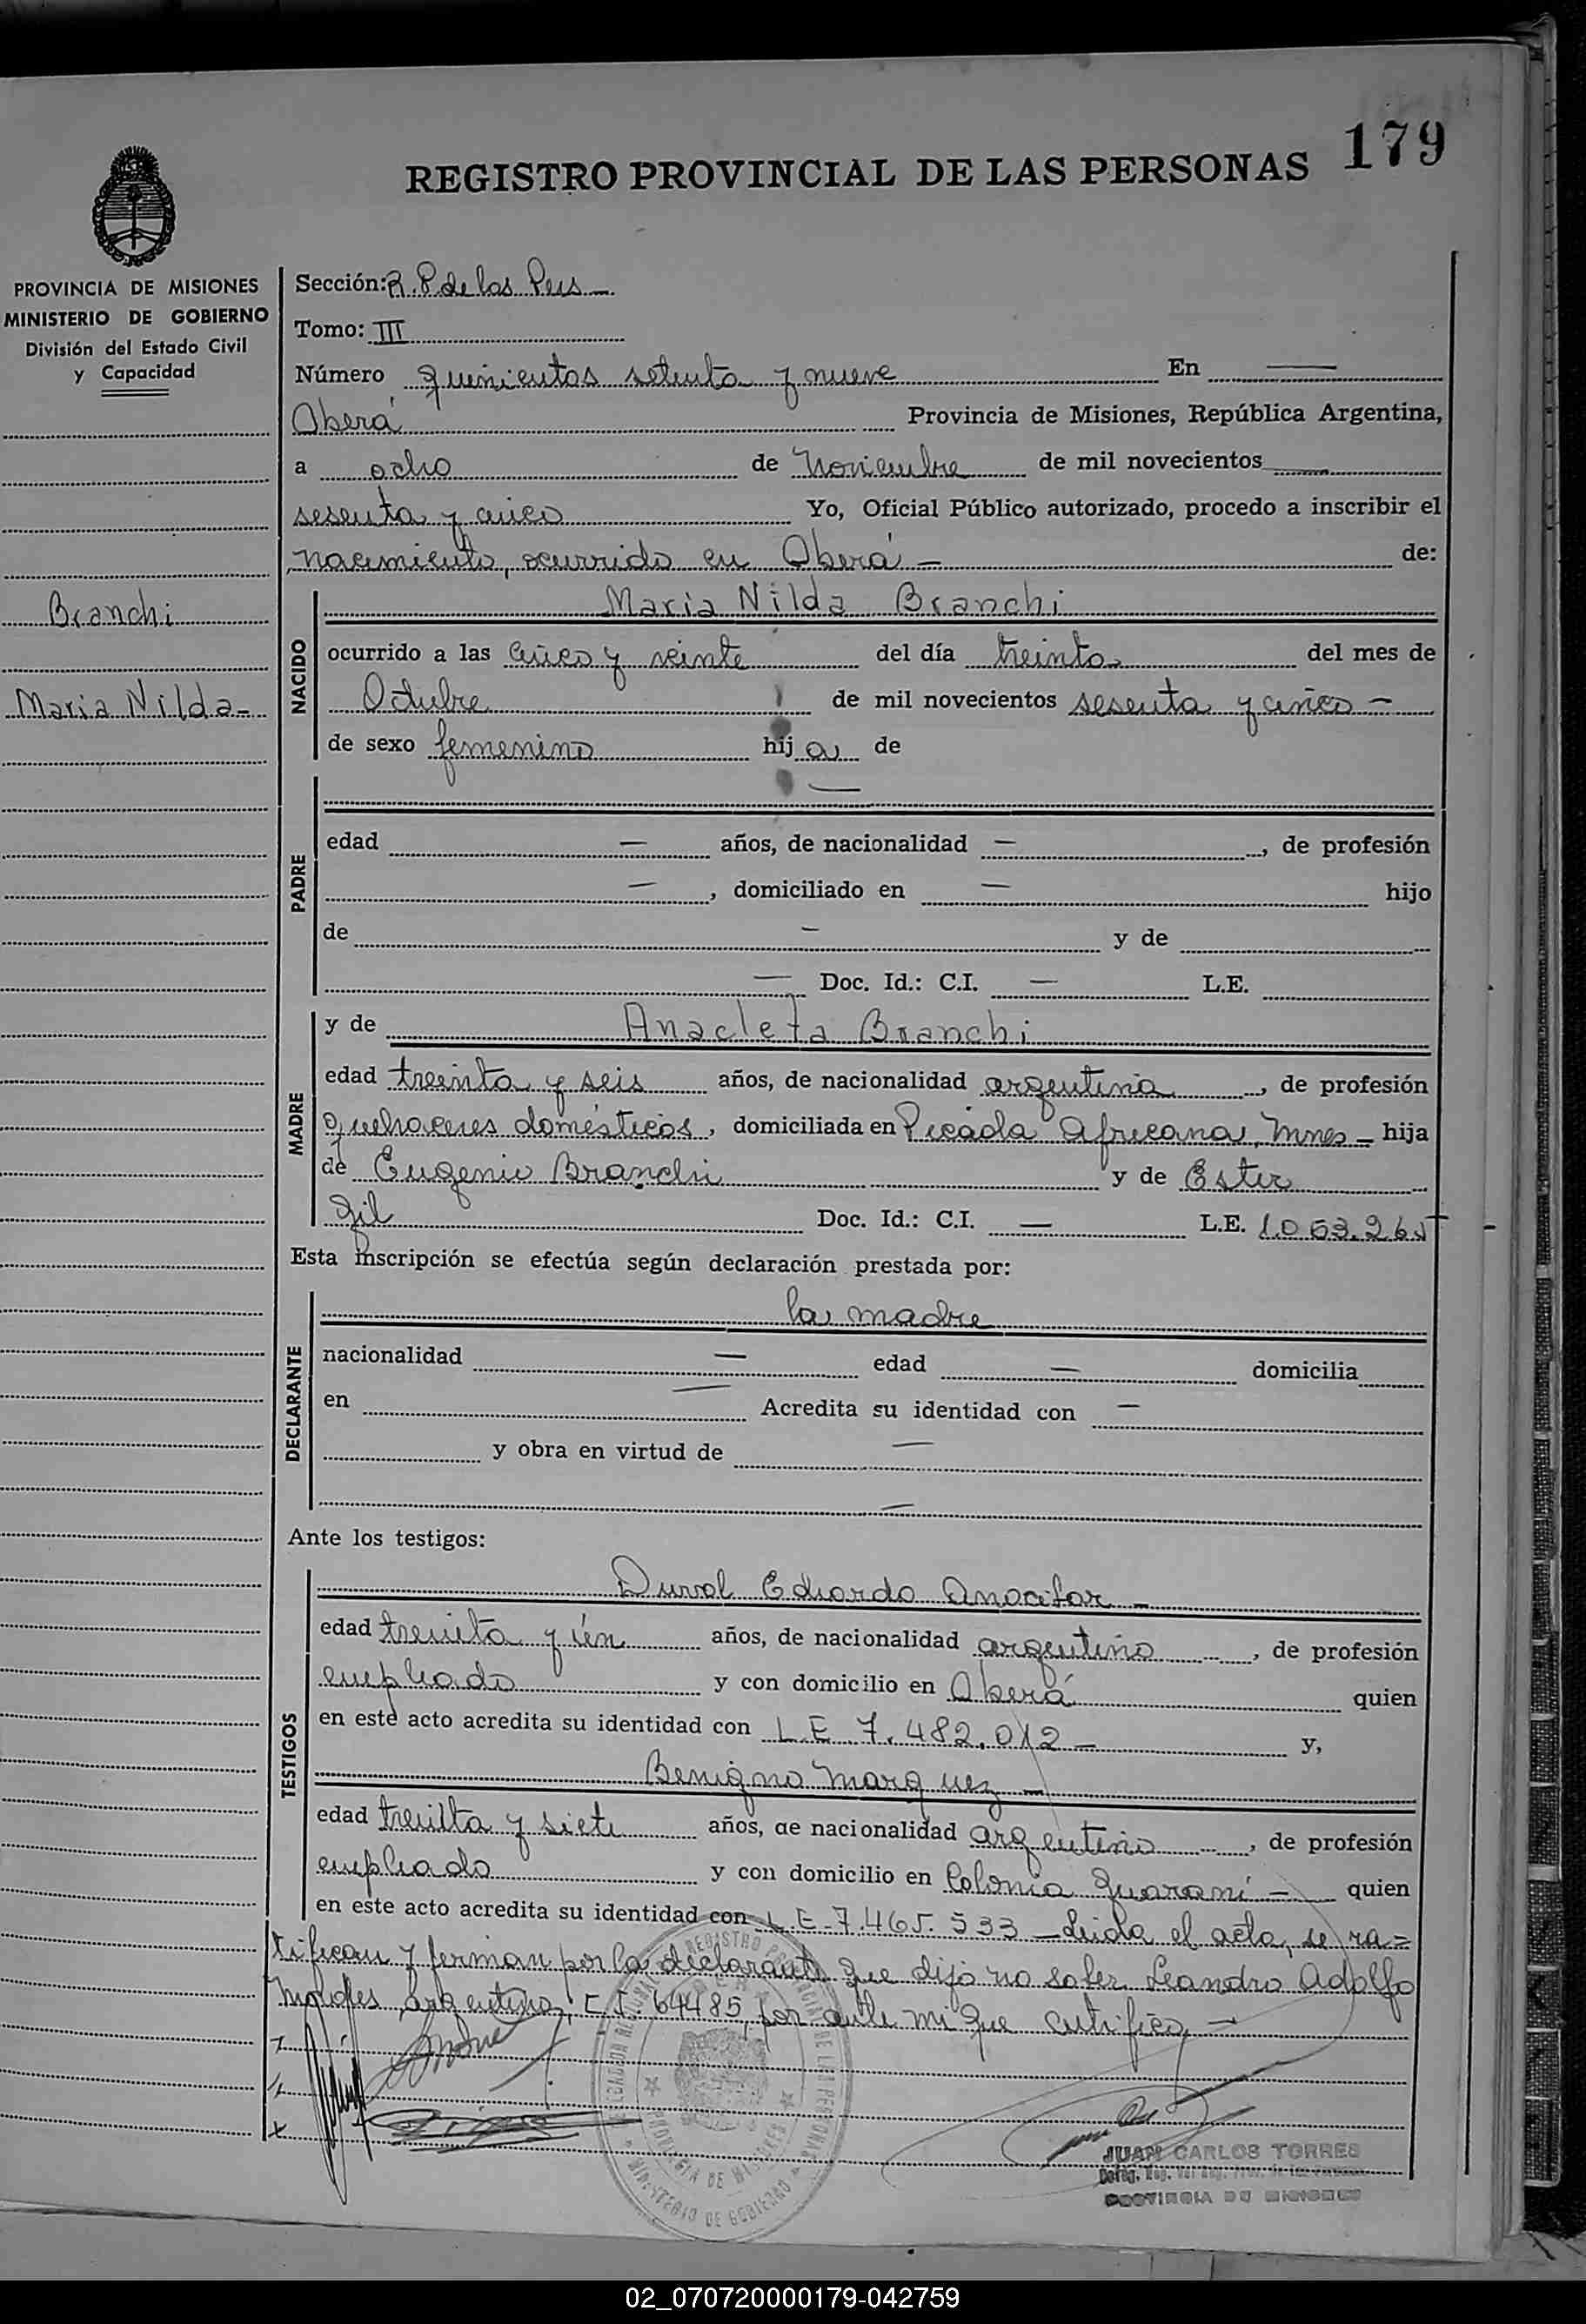 179
REGISTRO PROVINCIAL DE LAS PERSONAS
PROVINCIA DE MISIONES
MINISTERIO DE GOBIERNO
División del Estado Civil
y Capacidad
Branchi
Maria Nilda-
Sección: R. P. de las Pers -
Tomo: III
Número quinientos setenta y nueve En —
Oberá Provincia de Misiones, República Argentina,
a ocho de Noviembre de mil novecientos
sesenta y cinco Yo, Oficial Público autorizado, procedo a inscribir el
nacimiento, ocurrido en Oberá - de:
NACIDO
Maria Nilda Branchi
ocurrido a las cinco y veinte del día treinta del mes de
Octubre de mil novecientos sesenta y cinco -
de sexo femenino hija de
PADRE
—
edad — años, de nacionalidad —, de profesión
—, domiciliado en — hijo
de — y de
— Doc. Id.: C.I. — L.E.
MADRE
y de Anacleta Branchi
edad treinta y seis años, de nacionalidad argentina, de profesión
quehaceres domésticos, domiciliada en Picada Africana, Mnes - hija
de Eugenio Branchi y de Ester
Gil Doc. Id.: C.I. — L.E. 1.063.265
Esta inscripción se efectúa según declaración prestada por:
DECLARANTE
la madre
nacionalidad — edad — domicilia
en — Acredita su identidad con —
y obra en virtud de —
—
Ante los testigos:
TESTIGOS
Durval Eduardo Amocitar -
edad treinta y un años, de nacionalidad argentino, de profesión
empleado y con domicilio en Oberá quien
en este acto acredita su identidad con L.E. 7.482.012 - y,
Benigno Marquez -
edad treinta y siete años, de nacionalidad argentino, de profesión
empleado y con domicilio en Colonia Guaraní - quien
en este acto acredita su identidad con L.E. 7.465.533 - Leida el acta, se ra=
tifican y firman por la declarante que dijo no saber Leandro Adolfo
argentino, C.I. 64485, por ante mi que certifico, -
REGISTRO PROVINCIAL DE LAS PERSONAS
PROVINCIA DE MISIONES
MINISTERIO DE GOBIERNO
JUAN CARLOS TORRES
PROVINCIA DE MISIONES
02_070720000179-042759